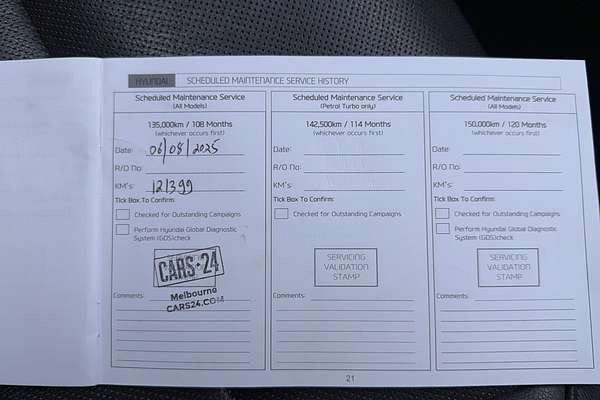 HYUNDAI SCHEDULED MAINTENANCE SERVICE HISTORY
Scheduled Maintenance Service
(All Models)
135,000km / 108 Months
(whichever occurs first)
Date: 06/08/2025
R/O No:
KM's: 121399
Tick Box To Confirm:
Checked for Outstanding Campaigns
Perform Hyundai Global Diagnostic
System (GDS)check
CARS24
Melbourne
CARS24.COM
Comments:
Scheduled Maintenance Service
(Petrol Turbo only)
142,500km / 114 Months
(whichever occurs first)
Date:
R/O No:
KM's:
Tick Box To Confirm:
Checked for Outstanding Campaigns
SERVICING
VALIDATION
STAMP
Comments:
Scheduled Maintenance Service
(All Models)
150,000km / 120 Months
(whichever occurs first)
Date:
R/O No:
KM's:
Tick Box To Confirm:
Checked for Outstanding Campaigns
Perform Hyundai Global Diagnostic
System (GDS)check
SERVICING
VALIDATION
STAMP
Comments:
21